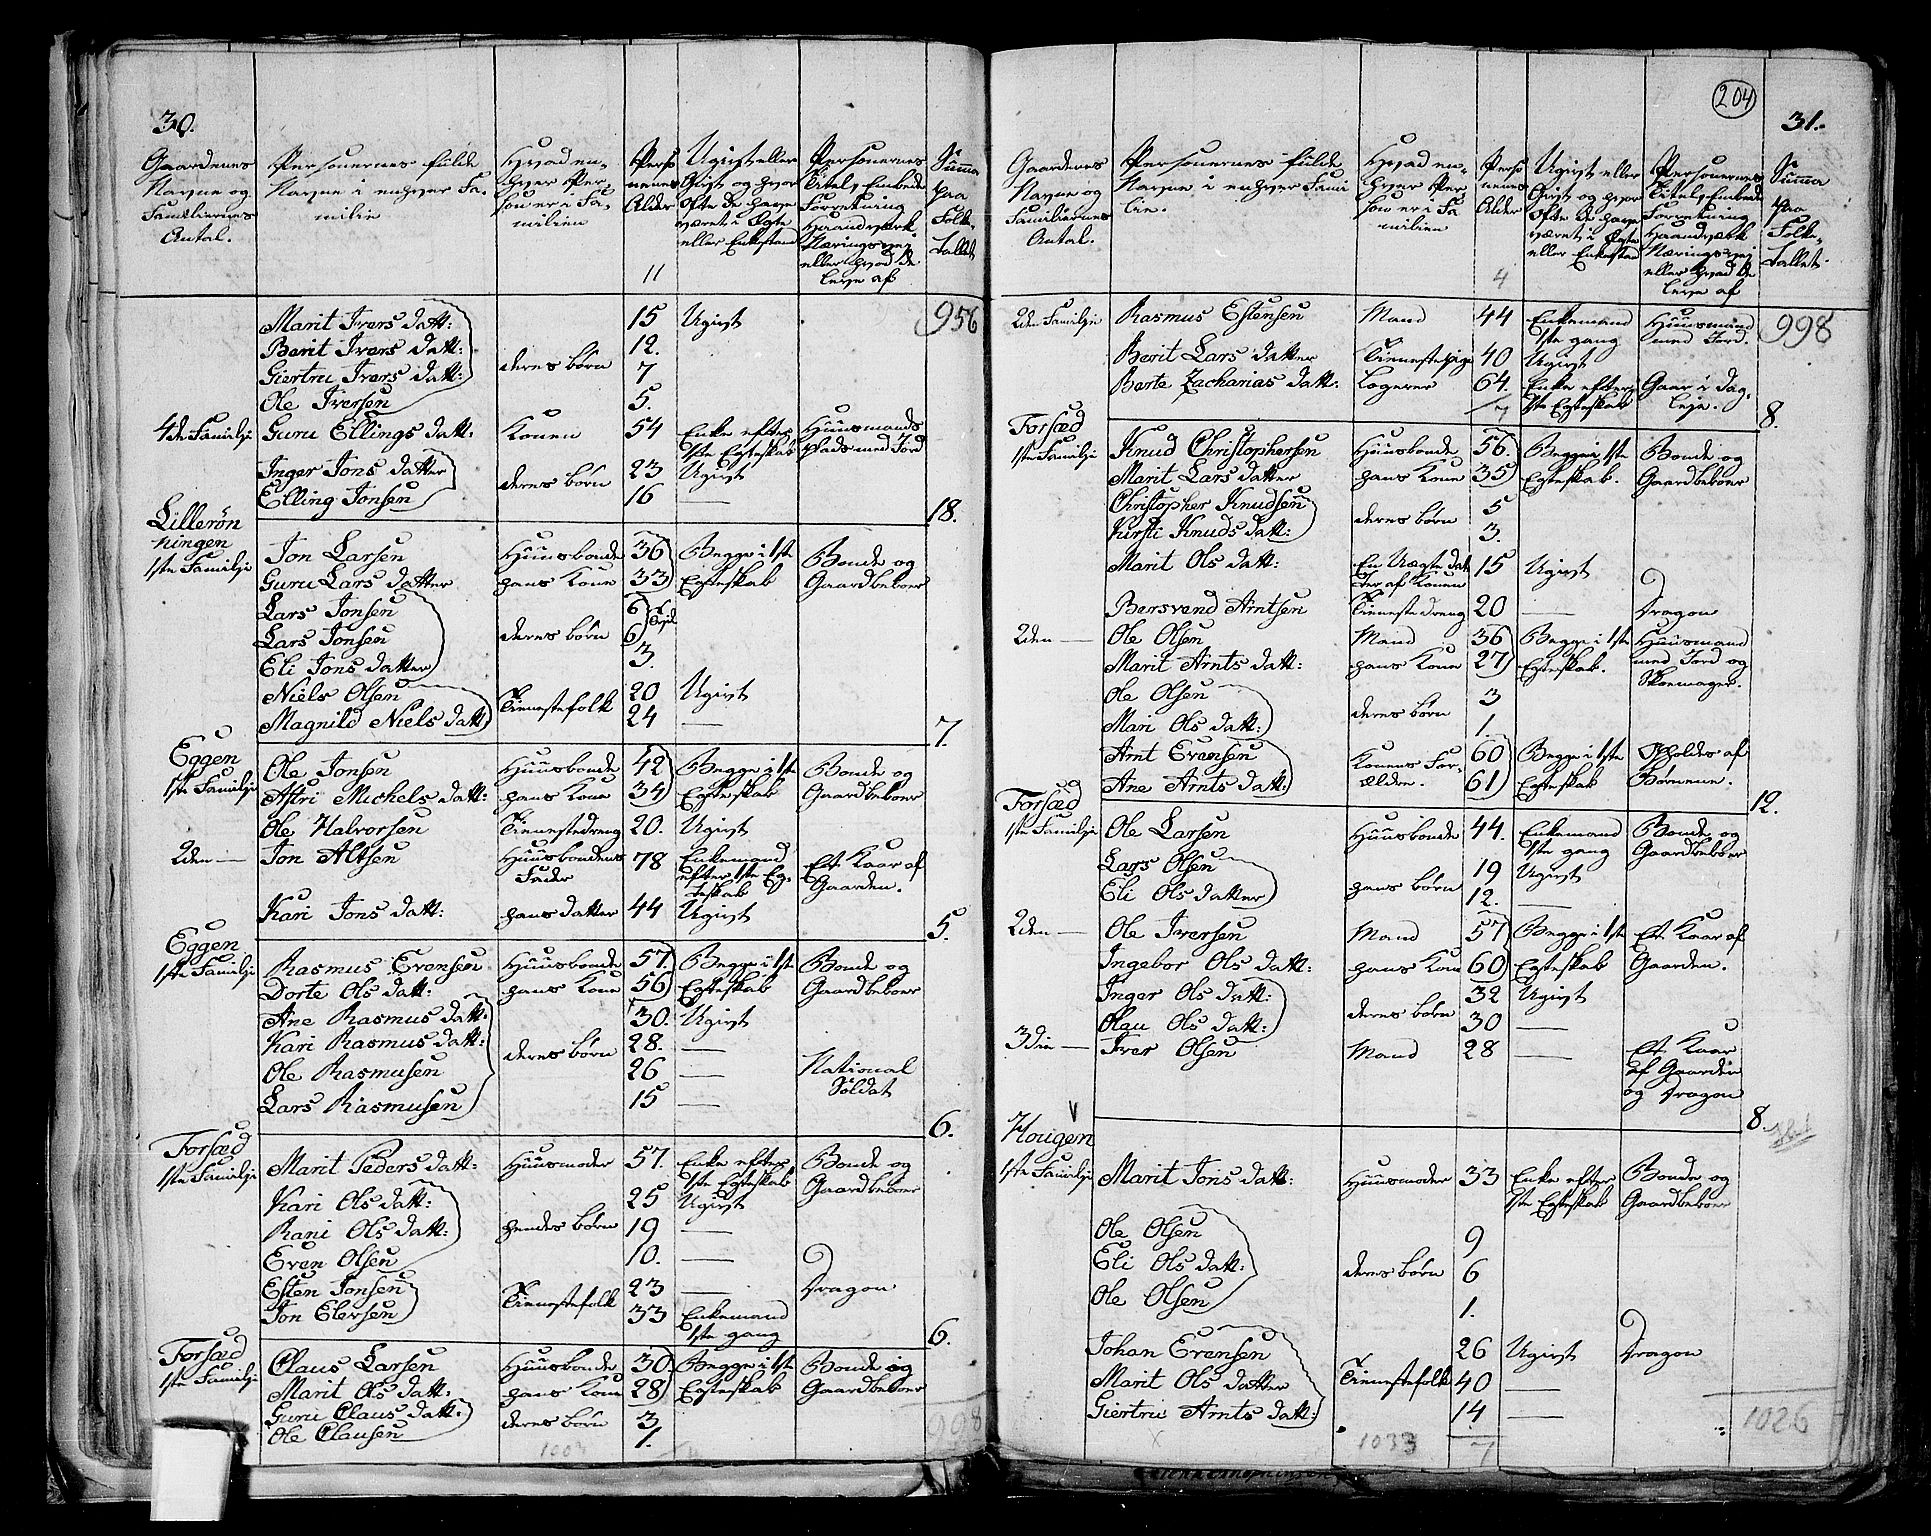 30.
Gaardenes Navne og Familiernes Antal.
Personernes fulde Navne i enhver Familie
Hvad enhver Person er i Familien
Personernes Alder
Ugivt eller Givt og hvor ofte de have været i Egte eller Enkestand
Personernes Titel, Embede Forretning Haandværk Næringsvej eller hvad de leve af
Summa paa Folketallet
11
Marit Ivers datt: 15 Ugivt 956
Berit Ivers datt: 12.
Giertru Ivers datt: deres børn 7
Ole Iversen 5.
4de Familie Guru Ellings datt: Konen 54 Enke efter 1ste Egteskab Huusmands plads med Jord
Inger Jons datter deres børn 23 Ugivt
Elling Jonsen 16 — 18.
Lillerønningen
1ste Familie Jon Larsen Huusbonde 36 Begge i 1ste Bonde og
Guru Lars datter hans Kone 33 Egteskab Gaardbeboer
Lars Jonsen 6
Lars Jonsen deres børn 6
Eli Jons datter 3.
Niels Olsen Tienestefolk 20 Ugivt
Magnild Niels datt 24 — 7.
Eggen
1ste Familie Ole Jonsen Huusbonde 42 Begge i 1ste Bonde og
Astri Michels datt: hans Kone 34 Egteskab Gaardbeboer
Ole Halvorsen Tienestedreng 20. Ugivt
2den — Jon Altsen Huusbondens Fader 78 Enkemand efter 1ste Egteskab Et Kaar af Gaarden.
Kari Jons datt: hans datter 44 Ugivt 5.
Eggen
1ste Familie Rasmus Evensen Huusbonde 57. Begge i 1ste Bonde og
Dorte Ols datt: hans Kone 56 Egteskab Gaardbeboer
Ane Rasmus datt: 30. Ugivt
Kari Rasmus datt: deres børn 28. —
Ole Rasmusen 26 — National Soldat
Lars Rasmusen 15 — 6.
Forsæd
1ste Familie Marit Peders datt: Huusmoder 57. Enke efter 1ste Egteskab Bonde og Gaardbeboer
Kari Ols datt: 25 Ugivt
Rani Ols datt: hendes børn 19 —
Even Olsen 10. —
Esten Jonsen Tienestefolk 23 — Dragon
Jon Elersen 33 Enkemand 1ste gang 6.
Forsæd
1ste Familie Claus Larsen Huusbonde 30. Begge i 1ste Bonde og
Marit Ols datt: hans Kone 28 Egteskab Gaardbeboer
Guru Claus datt: deres børn 3
Ole Clausen 1. 998
1003
204
31.
Gaardenes Navne og Familiernes Antal.
Personernes fulde Navne i enhver Familie.
Hvad enhver Person er i Familien
Personernes Alder
Ugivt eller Givt og hvor ofte de have været i Egte eller Enkestad
Personernes Titel, Embede Forretning Haandværk Næringsvej eller hvad de leve af
Summa paa Folketallet.
4
2den Familie Rasmus Estensen Mand 44 Enkemand 1ste gang Huusmand med Jord. 998
Berit Lars datter Tienestepige 40 Ugivt
Berte Zacharias datt: Logerer 64. Enke efter 1ste Egteskab Gaar i Dagleje. 8.
7
Forsæd
1ste Familie Knud Christophersen Huusbonde 56. Begge i 1ste Bonde og
Marit Lars datter hans Kone 35 Egteskab. Gaardbeboer
Christopher Knudsen deres børn 5
Kirsti Knuds datt: 3.
Marit Ols datt: En Uægte datter af Konen 15 Ugivt
Bersvend Arntsen Tienestedreng 20 — Dragon
2den — Ole Olsen Mand 36 Begge i 1ste Huusmand
Marit Arnts datt: hans Kone 27 Egteskab. med Jord og Skoemager.
Ole Olsen deres børn 3
Mari Ols datt: 1.
Arnt Evensen Konens Forældre. 60 Begge i 1ste Opholdes af
Ane Arnts datt: 61 Egteskab Børnene. 12.
Forsæd
1ste Familie Ole Larsen Huusbonde 44. Enkemand 1ste gang Bonde og Gaardbeboer
Lars Olsen hans børn 19 Ugivt
Eli Ols datter 12. —
2den — Ole Iversen Mand 57 Begge i 1ste Et Kaar af
Ingebor Ols datt: hans Kone 60 Egteskab Gaarden.
Inger Ols datt: deres børn 32 Ugivt
Olau Ols datt: 30 —
3die — Iver Olsen Mand 28 — Et Kaar af Gaarden og Dragon 8.
Hougen
1ste Familie Marit Jons datt: Huusmoder 33 Enke efter 1ste Egteskab Bonde og Gaardbeboer
Ole Olsen 9
Eli Ols datt: deres børn 6
Ole Olsen 1.
Johan Evensen 26 Ugivt Dragon
Marit Ols datter Tienestefolk 40 —
Giertru Arnts datt: 14. — 1026
1033 7